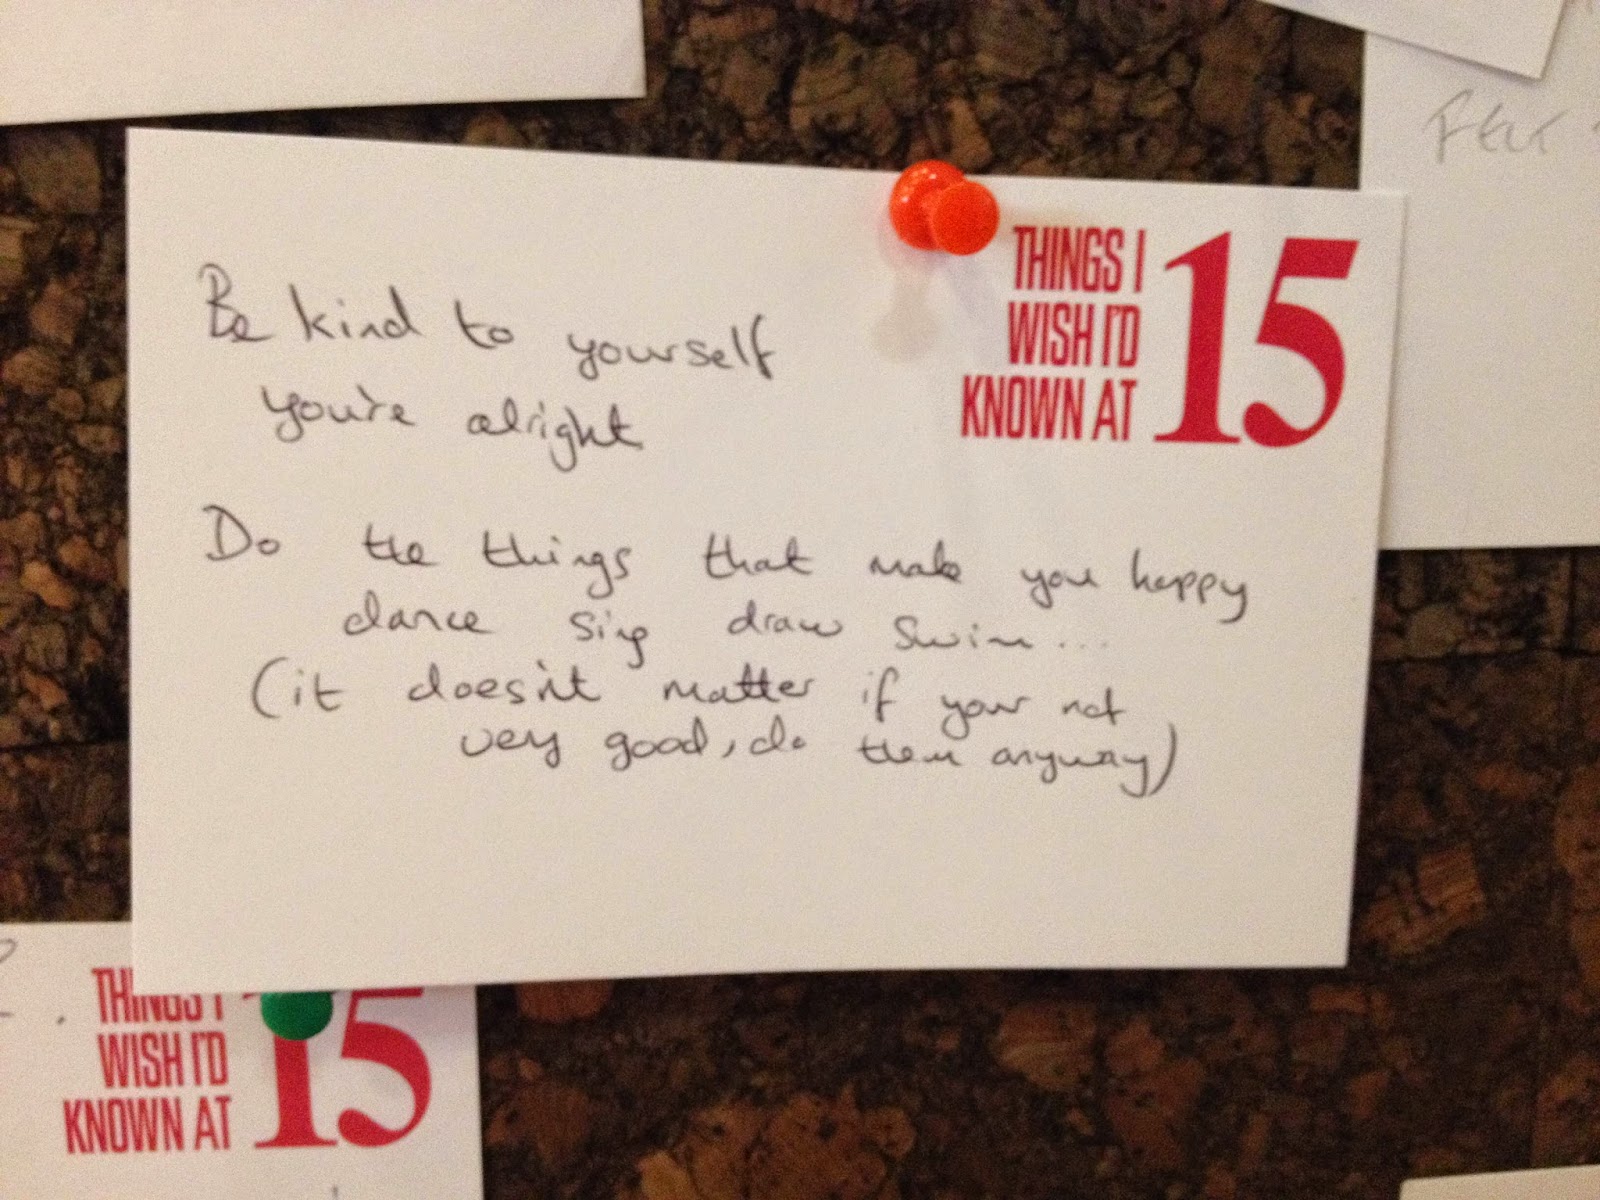 THINGS I
WISH I'D
KNOWN AT
15
Be kind to yourself
you're alright
Do the things that make you happy
dance sing draw swim...
(it doesn't matter if your not
very good, do them anyway)
THINGS I
WISH I'D
KNOWN AT
15